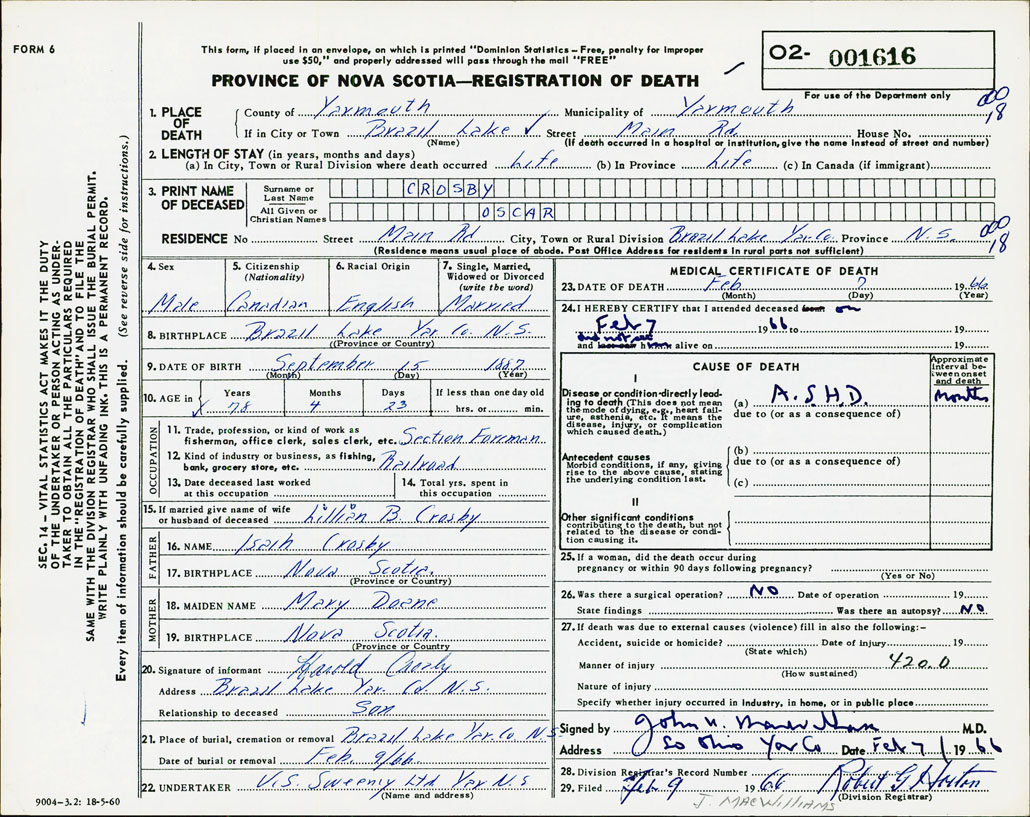 FORM 6
This form, if placed in an envelope, on which is printed "Dominion Statistics – Free, penalty for improper
use $50," and properly addressed will pass through the mail "FREE"
PROVINCE OF NOVA SCOTIA—REGISTRATION OF DEATH
O2- 001616
For use of the Department only
1. PLACE OF DEATH County of Yarmouth Municipality of Yarmouth
If in City or Town Brazil Lake ✓ Street Main Rd. House No.
(Name) (If death occurred in a hospital or institution, give the name instead of street and number)
000
18
2. LENGTH OF STAY (in years, months and days)
(a) In City, Town or Rural Division where death occurred Life (b) In Province Life (c) In Canada (if immigrant)
3. PRINT NAME OF DECEASED
Surname or Last Name CROSBY
All Given or Christian Names OSCAR
RESIDENCE No Street Main Rd City, Town or Rural Division Brazil Lake Yar. Co. Province N.S.
(Residence means usual place of abode. Post Office Address for residents in rural parts not sufficient)
000
18
4. Sex
Male
5. Citizenship (Nationality)
Canadian
6. Racial Origin
English
7. Single, Married, Widowed or Divorced (write the word)
Married
8. BIRTHPLACE Brazil Lake Yar. Co. N.S.
(Province or Country)
9. DATE OF BIRTH September 15 1887
(Month) (Day) (Year)
10. AGE in Years Months Days If less than one day old
78 4 23 hrs. or min.
OCCUPATION
11. Trade, profession, or kind of work as
fisherman, office clerk, sales clerk, etc. Section Foreman
12. Kind of industry or business, as fishing,
bank, grocery store, etc. Railroad
13. Date deceased last worked
at this occupation
14. Total yrs. spent in
this occupation
15. If married give name of wife
or husband of deceased Lillian B. Crosby
FATHER
16. NAME Isaih Crosby
17. BIRTHPLACE Nova Scotia.
(Province or Country)
MOTHER
18. MAIDEN NAME Mary Doane
19. BIRTHPLACE Nova Scotia.
(Province or Country
20. Signature of informant Harold Crosby
Address Brazil Lake Yar. Co. N.S.
Relationship to deceased Son
21. Place of burial, cremation or removal Brazil Lake Yar. Co N.S.
Date of burial or removal Feb. 9/66
22. UNDERTAKER V.S. Sweeny Ltd. Yar N.S
(Name and address)
9004–3.2: 18-5-60
MEDICAL CERTIFICATE OF DEATH
23. DATE OF DEATH Feb 7 1966
(Month) (Day) (Year)
24. I HEREBY CERTIFY that I attended deceased from on
Feb 7 1966 to 19
and not see
and last saw h alive on 19
CAUSE OF DEATH
Approximate interval between onset and death
I
Disease or condition directly leading to death (This does not mean the mode of dying, e.g., heart failure, asthenia, etc. It means the disease, injury, or complication which caused death.)
(a) A.S.H.D. Months
due to (or as a consequence of)
Antecedent causes
Morbid conditions, if any, giving rise to the above cause, stating the underlying condition last.
(b)
due to (or as a consequence of)
(c)
II
Other significant conditions
contributing to the death, but not related to the disease or condition causing it.
25. If a woman, did the death occur during
pregnancy or within 90 days following pregnancy?
(Yes or No)
26. Was there a surgical operation? NO Date of operation 19
State findings Was there an autopsy? NO
27. If death was due to external causes (violence) fill in also the following:–
Accident, suicide or homicide? Date of injury 19
(State which)
Manner of injury 420.0
(How sustained)
Nature of injury
Specify whether injury occurred in industry, in home, or in public place
Signed by John M. M.D.
Address So Ohio Yar Co Date Feb 7 1966
28. Division Registrar's Record Number
29. Filed Feb 9 1966 Robert G Horton
(Division Registrar)
J. MACWILLIAMS
SEC. 14 – VITAL STATISTICS ACT MAKES IT THE DUTY
OF THE UNDERTAKER OR PERSON ACTING AS UNDER-
TAKER TO OBTAIN ALL THE PARTICULARS REQUIRED
IN THE "REGISTRATION OF DEATH" AND TO FILE THE
SAME WITH THE DIVISION REGISTRAR WHO SHALL ISSUE THE BURIAL PERMIT.
WRITE PLAINLY WITH UNFADING INK. THIS IS A PERMANENT RECORD.
Every item of information should be carefully supplied. (See reverse side for instructions.)